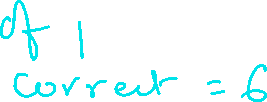 of 1
correct = 6